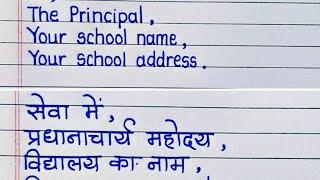 The Principal,
Your school name,
Your school address.
सेवा में,
प्रधानाचार्य महोदय,
विद्यालय का नाम,